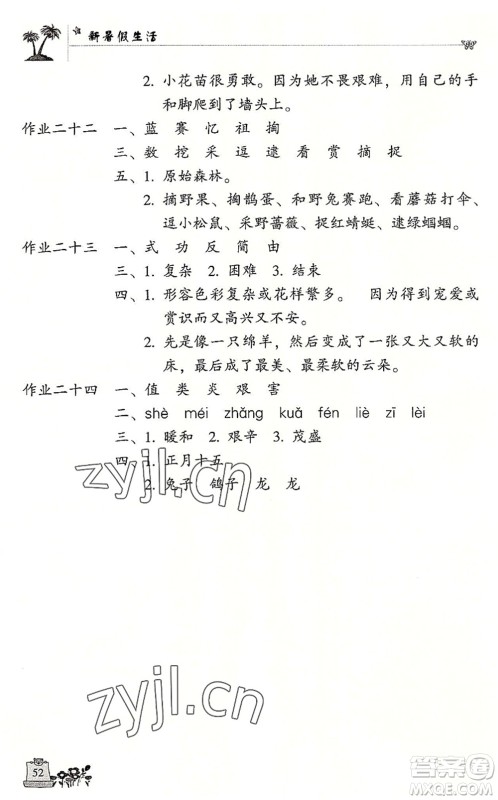 新暑假生活
2. 小花苗很勇敢。因为她不畏艰难，用自己的手
和脚爬到了墙头上。
作业二十二 一、蓝 赛 忆 祖 掏
三、数 挖 采 逗 逮 看 赏 摘 捉
五、1. 原始森林。
2. 摘野果、掏鹊蛋、和野兔赛跑、看蘑菇打伞、
逗小松鼠、采野蔷薇、捉红蜻蜓、逮绿蝈蝈。
作业二十三 一、式 功 反 简 由
三、1. 复杂 2. 困难 3. 结束
四、1. 形容色彩复杂或花样繁多。 因为得到宠爱或
赏识而又高兴又不安。
2. 先是像一只绵羊，然后变成了一张又大又软的
床，最后变成了最美、最柔软的云朵。
作业二十四 一、值 类 炎 艰 害
二、shè méi zhǎng kuǎ fén liè zī lèi
三、1. 暖和 2. 艰辛 3. 茂盛
四、1. 正月十五
2. 兔子 鸽子 龙 龙
zyjl.cn
zyjl.cn
52
答案圈
MXQE.COM